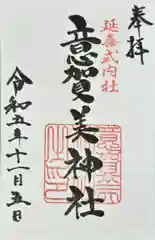 奉拝
延喜式内社
意賀美神社
令和五年十一月五日